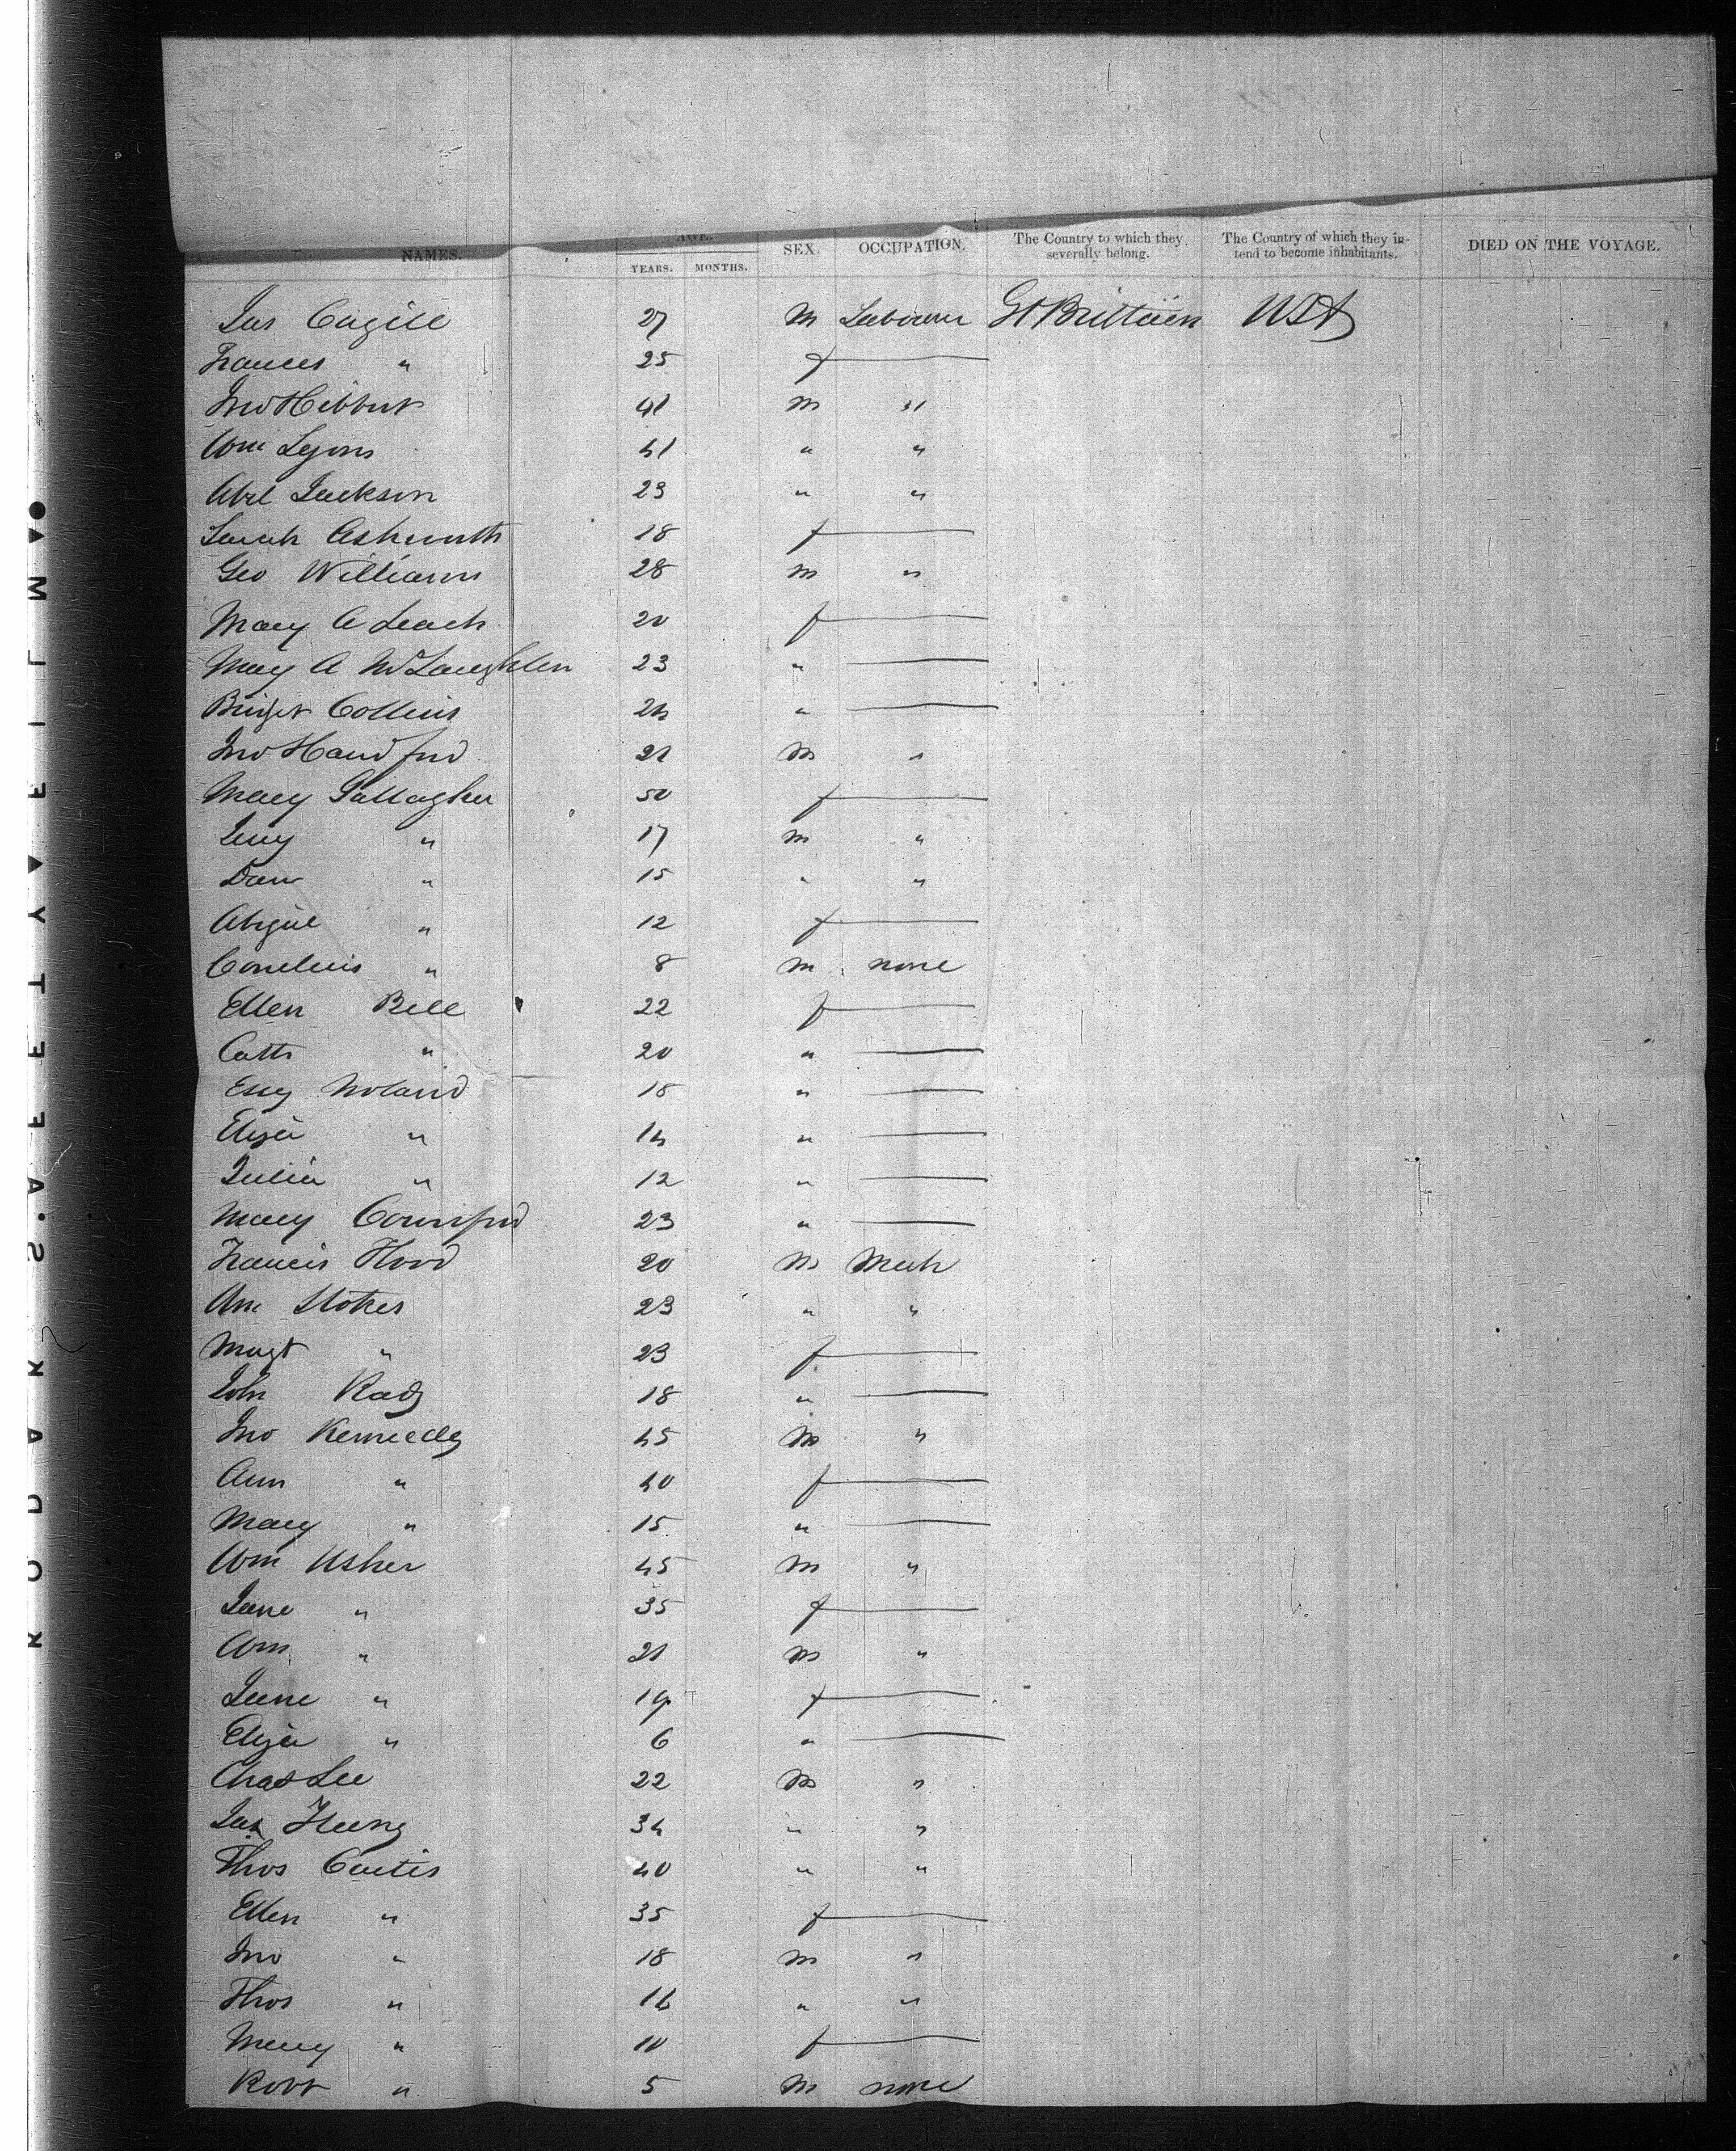 NAMES. AGE. SEX. OCCUPATION. The Country to which they severally belong. The Country of which they intend to become inhabitants. DIED ON THE VOYAGE.
YEARS. MONTHS.
Jas Cagill 27 M Labourer Gt Brittain USA
Frances " 25 f
Jno Hibbert 41 M "
Wm Lyons 41 " "
Abel Jackson 23 " "
Sarah Ashworth 18 f
Geo Williams 28 M "
Mary A Leach 20 f
Mary A McLaughlen 23 "
Bridget Collins 24 "
Jno Handford 21 M "
Mary Gallagher 50 f
" 17 M "
Dan " 15 " "
Abigail " 12 f
Cornelius " 8 M none
Ellen Bell 22 f
Cath " 20 "
Essy Noland 18 "
Eliza " 14 "
Julia " 12 "
Mary 23 "
Francis Hood 20 M Mech
Stokes 23 " "
Magt " 23 f
John Rady 18 "
Jno Kennedy 45 M "
Ann " 40 f
Mary " 15 "
Wm Usher 45 M "
Jane " 35 f
Wm " 21 M "
Jane " 19 f
Eliza " 6 "
Chas Lee 22 M "
Jas 34 " "
Thos Curtis 40 " "
Ellen " 35 f
Jno " 18 M "
Thos " 16 " "
Mary " 10 f
Robt " 5 M none
KODAK S.AFETY